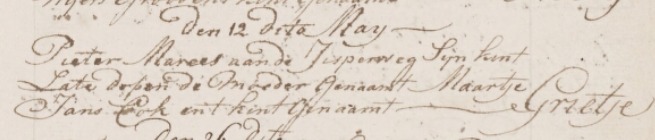 den 12 dito May
Pieter Marees vande Jisperweg Sijn kint
Late dopen de moeder Genaamt Maartje
Jans Kok ent kint Genaamt Grietje
den 26 dito